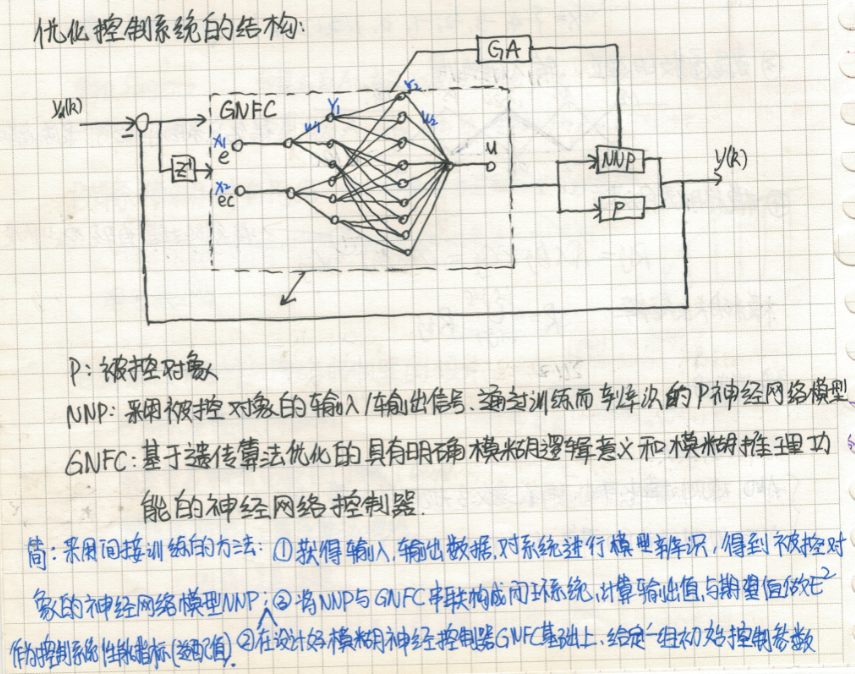 优化控制系统的结构:
GA
yd(k)
GNFC
Y1
Y2
x1
e
w1
w2
u
NNP
y(k)
z⁻¹
x2
ec
P
P: 被控对象
NNP: 采用被控对象的输入/输出信号、通过训练而辨识的P神经网络模型
GNFC: 基于遗传算法优化的具有明确模糊逻辑意义和模糊推理功
能的神经网络控制器.
简: 采用间接训练的方法: ①获得输入、输出数据,对系统进行模型辨识,得到被控对
象的神经网络模型NNP; ③将NNP与GNFC串联构成闭环系统,计算输出值,与期望值做E²
作为控制系统性能指标(适配值). ②在设计好模糊神经控制器GNFC基础上、给定一组初始控制参数